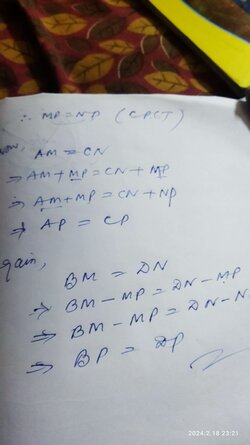 ∴ MP = NP (CPCT)
Now, AM = CN
⇒ AM + MP = CN + MP
⇒ AM + MP = CN + NP
⇒ AP = CP
gain,
BM = DN
⇒ BM - MP = DN - MP
⇒ BM - MP = DN - N
⇒ BP = DP
2024.2.18 23:21